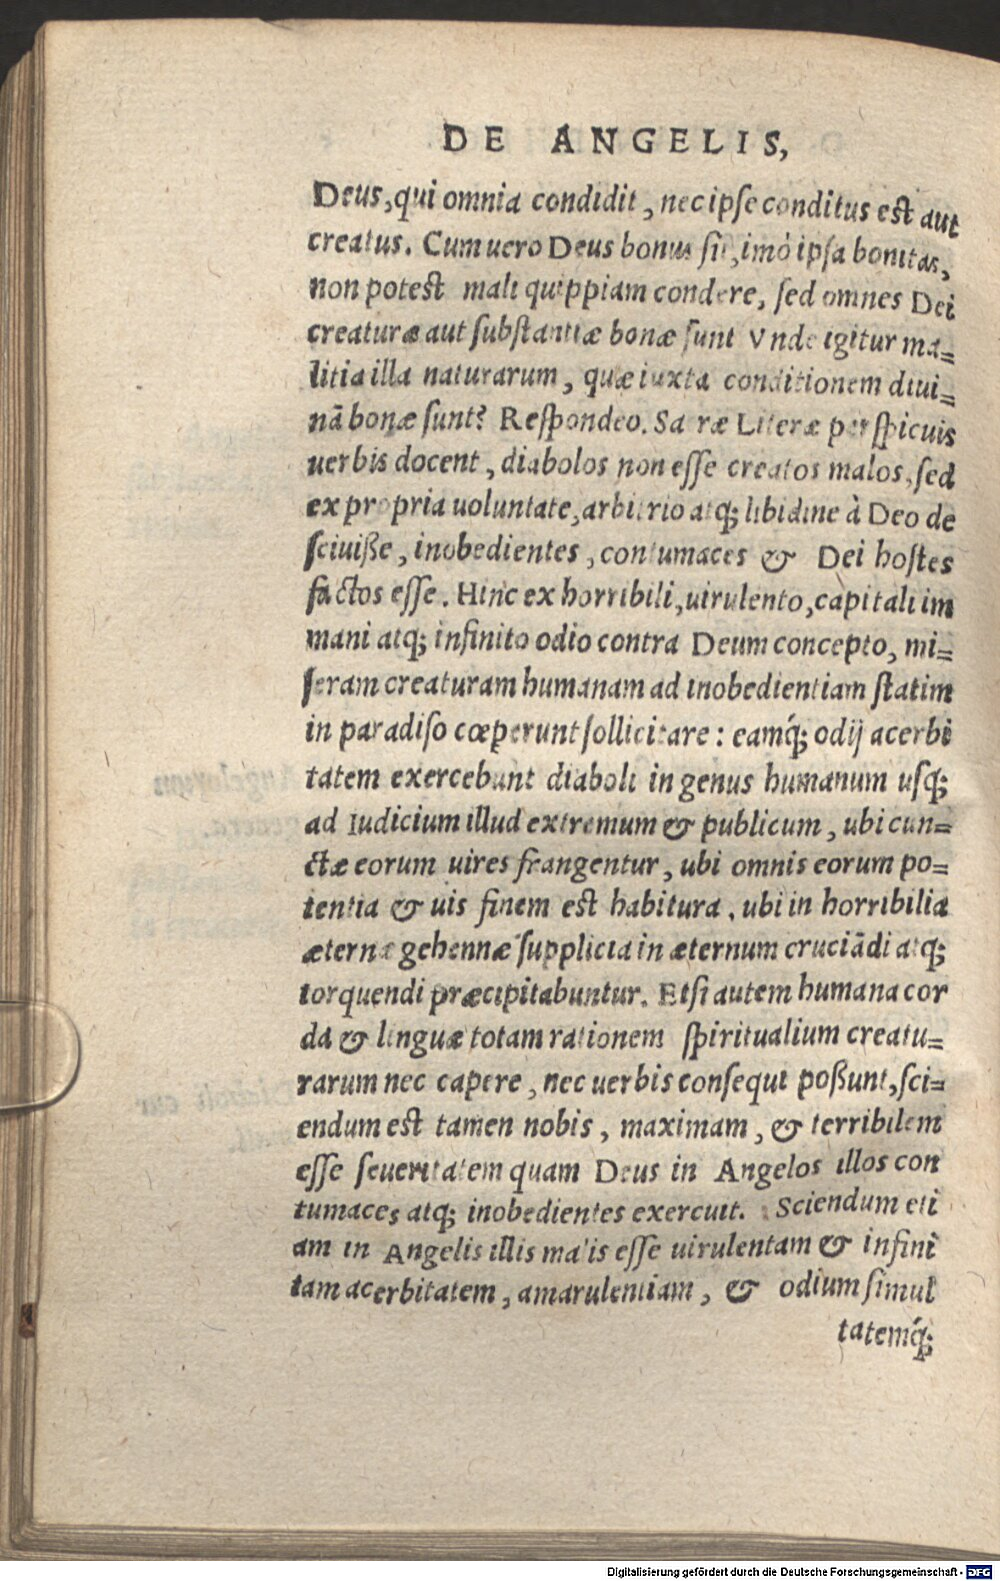 DE ANGELIS,
Deus, qui omnia condidit, nec ipſe conditus eſt aut
creatus. Cum uero Deus bonus ſit, imò ipſa bonitas,
non poteſt mali quippiam condere, ſed omnes Dei
creaturæ aut ſubſtantiæ bonæ ſunt Vnde igitur ma=
litia illa naturarum, quæ iuxta conditionem diui=
nā bonæ ſunt? Reſpondeo. Sa ræ Literæ perſpicuis
uerbis docent, diabolos non eſſe creatos malos, ſed
ex propria uoluntate, arbitrio atq; libidine à Deo de
ſciuiße, inobedientes, contumaces & Dei hoſtes
factos eſſe. Hinc ex horribili, uirulento, capitali im
mani atq; infinito odio contra Deum concepto, mi=
ſeram creaturam humanam ad inobedientiam ſtatim
in paradiſo cœperunt ſollicitare: eamq́; odij acerbi
tatem exercebunt diaboli in genus humanum uſq;
ad Iudicium illud extremum & publicum, ubi cun=
ctæ eorum uires frangentur, ubi omnis eorum po=
tentia & uis finem eſt habitura, ubi in horribilia
æternæ gehennæ ſupplicia in æternum cruciādi atq;
torquendi præcipitabuntur. Etſi autem humana cor
da & linguæ totam rationem ſpiritualium creatu=
rarum nec capere, nec uerbis conſequi poßunt, ſci=
endum eſt tamen nobis, maximam, & terribilem
eſſe ſeueritatem quam Deus in Angelos illos con
tumaces atq; inobedientes exercuit. Sciendum eti
am in Angelis illis malis eſſe uirulentam & infini
tam acerbitatem, amarulentiam, & odium ſimul
tatemq́;
Digitalisierung gefördert durch die Deutsche Forschungsgemeinschaft - DFG